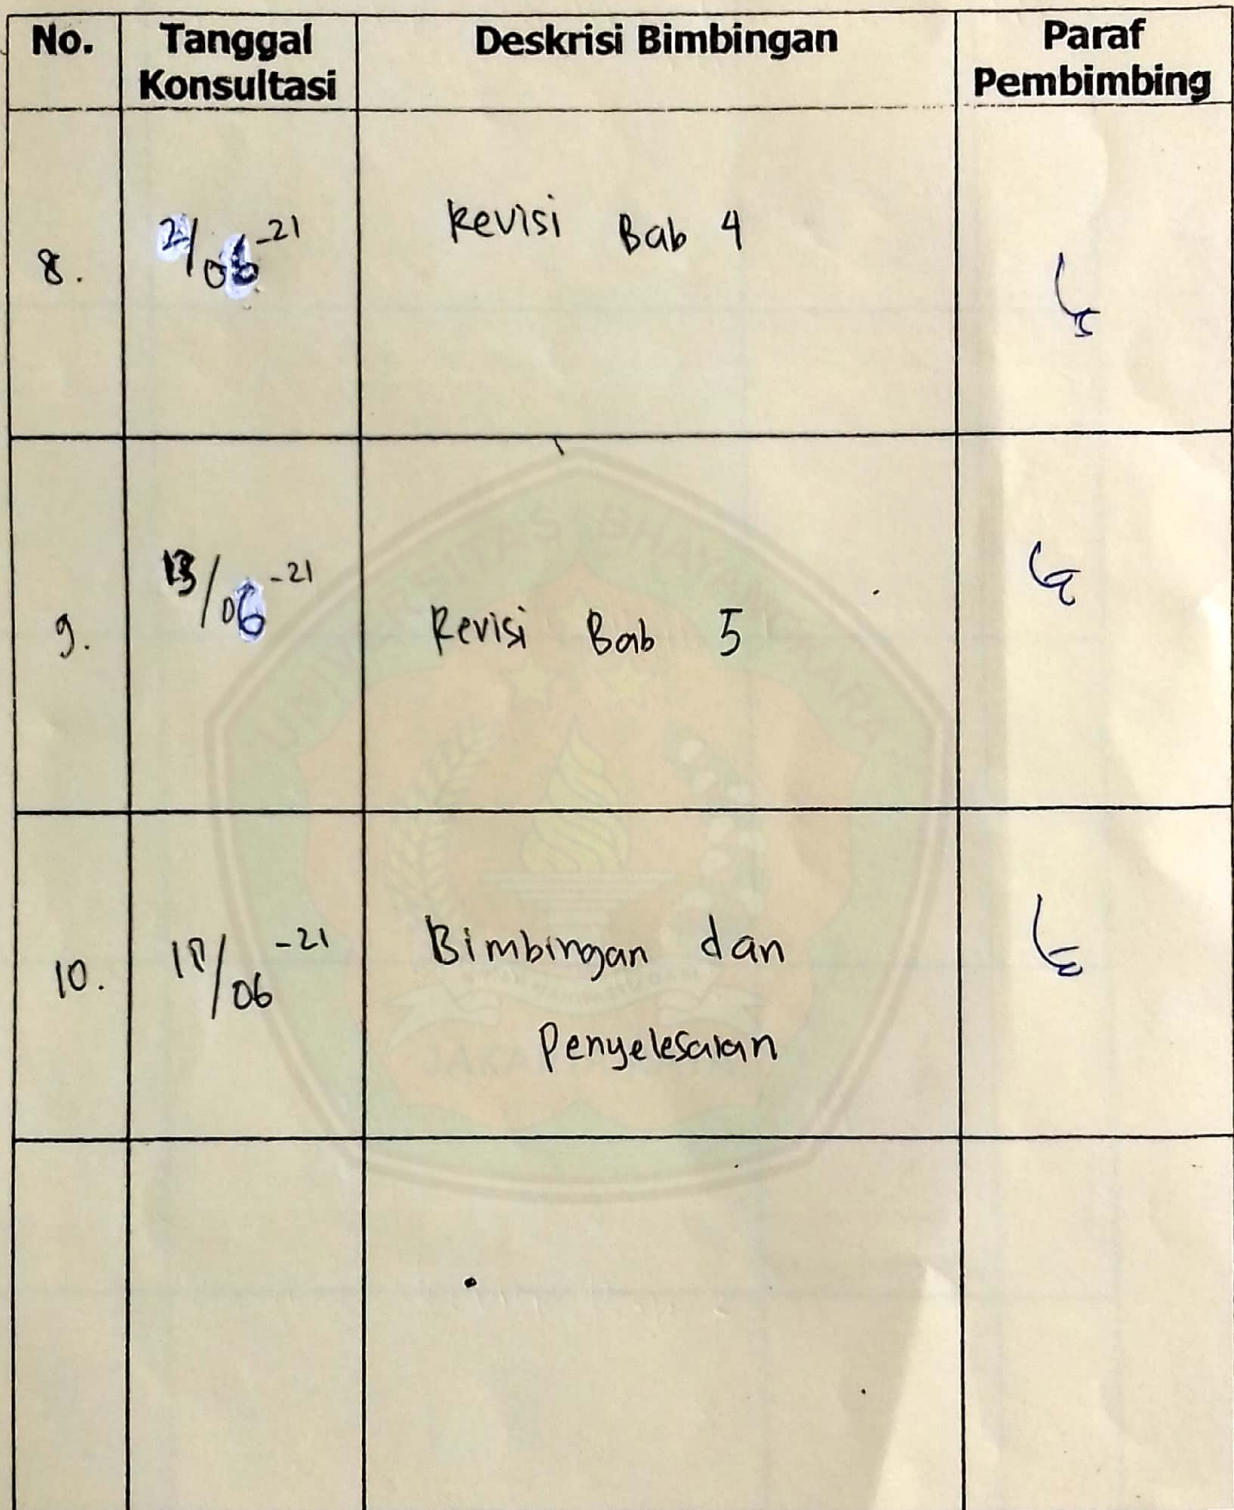 No. Tanggal Konsultasi Deskrisi Bimbingan Paraf Pembimbing
8. 2/06-21 Revisi Bab 4
9. 13/06-21 Revisi Bab 5
10. /06-21 Bimbingan dan
Penyelesaian
UNIVERSITAS BHAYANGKARA